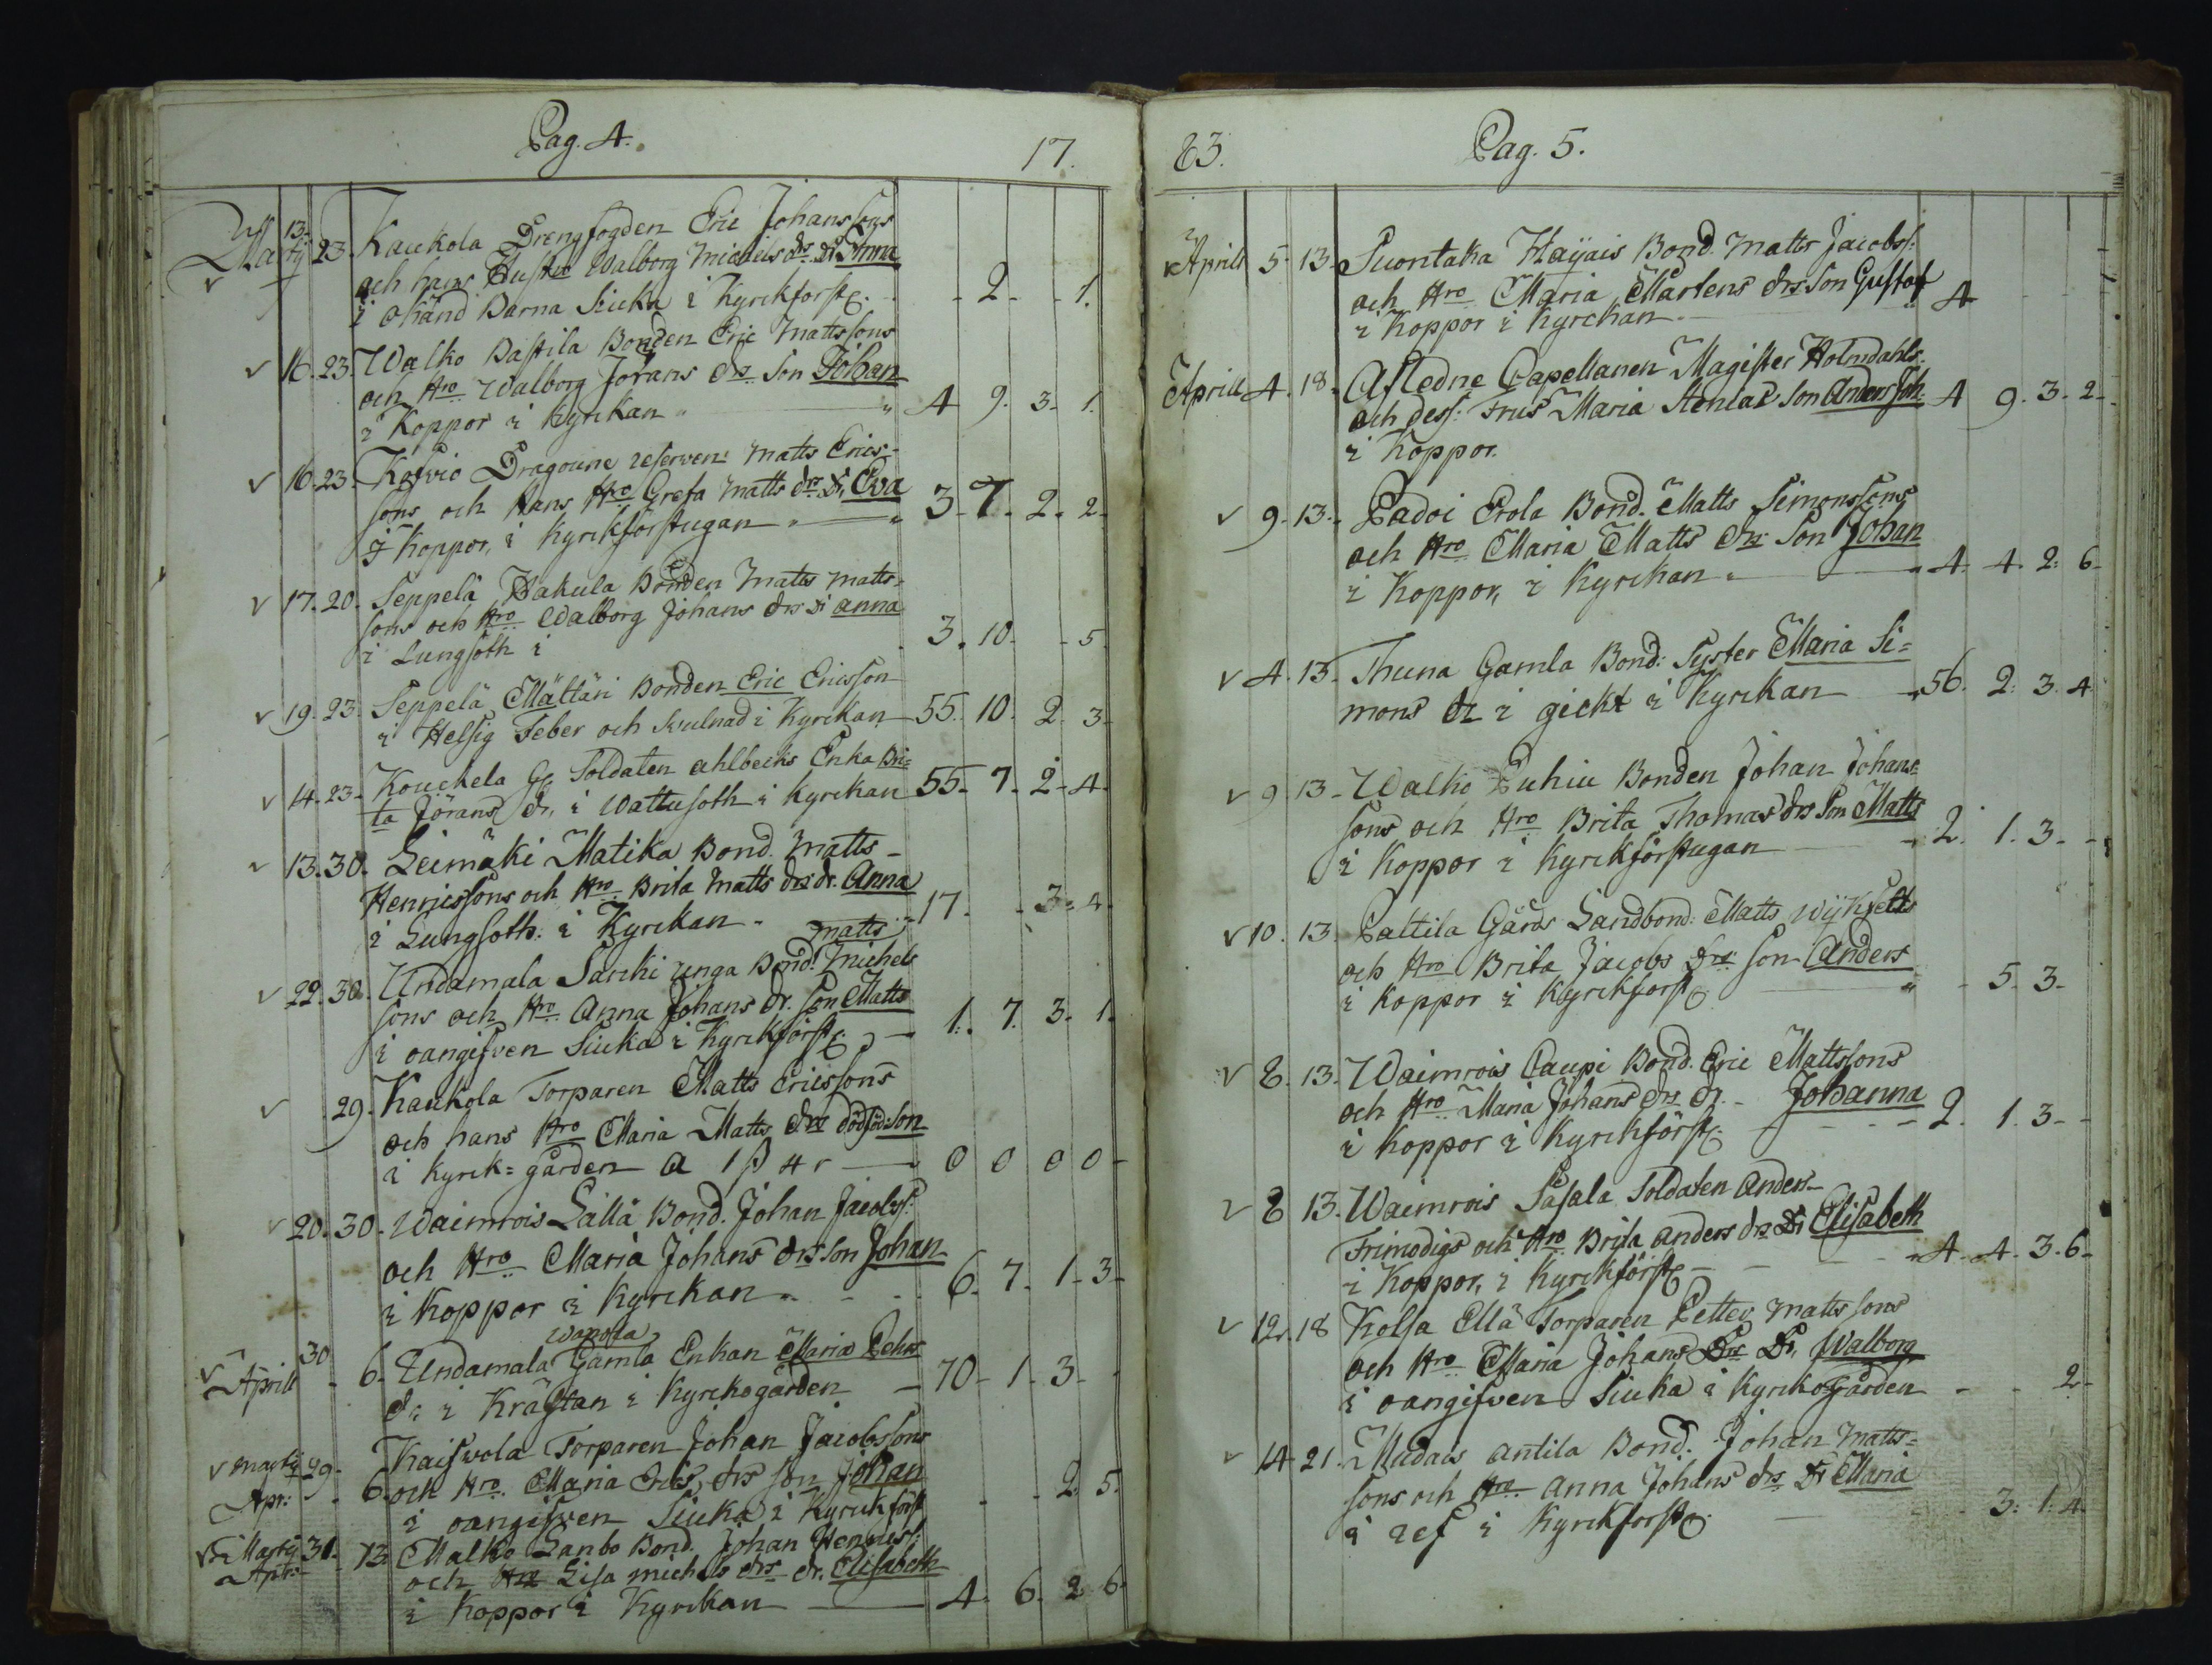 Pag. 4. 17.
Martij 13. 23. Kaukola Drengfogden Eric Johanssons
och hans Hustro Walborg Michels dr. Dr. Anna
i okänd Barna Siuka i Kyrckförstg. - 2 - - 1.
16. 23. Walko Bastila Bonden Eric Mattssons
och Hro Walborg Jörans drs Son Johan
i Koppor i Kyrckan 4 9. 3. 1.
16. 23. Dragoune reserven Matts Erics-
sons och hans Hro Greta Matts drs Dr. Eva
i Koppor, i Kyrckförstugan 3. 7. 2. 2.
17. 20. Seppelä Bonden Matts Matts=
sons och Hro Walborg Johans drs Dr anna
i Lungsoth i 3. 10. - 5
19. 23. Seppelä Mälläri Bonden Eric Ericsson
i Helsig Feber och Svulnad i Kyrckan 55. 10. 2. 3.
14. 23. Kouckela Soldaten ahlbecks Enka Bri=
ta Jörans Dr, i Wattusoth i Kyrckan 55. 7. 2. 4.
13. 30. Leimäki Matika Bond. Matts
Henricssons och Hro Brita Matts drs dr. Anna
i Lungsoth. i Kyrckan. 17. - 3. 4.
matts
22. 30. Undamala Sarcki unga Bond. Michels
sons och Hro Anna Johans dr. Son Matts
i oangifven Siuka i Kyrckförstg. 1. 7. 3. 1.
29. Kaukola Torparen Matts Ericssons
och hans Hro Maria Matts drs dödfödd son
i Kyrck=gården a 1 β 4 r 0 0 0 0
20. 30. Waimrois Lällä Bond. Johan Jacobss:
och Hro Maria Johans drs son Johan
i Koppor i Kyrckan 6. 7. 1. 3.
Wanota
Aprill 30 6. Undamala Gamla Enkan Maria
dr i Kräftan i Kyrckogården 70. 1. 3.
Martij 29. Kaiswola Torparen Johan Jacobssons
Apr: 6. och Hro Maria Erics drs son Johan
i oangifven Siuka i Kyrckförst - - 2. 5.
Martij 31. 13 Malko Lanbo Bond. Johan Henricss:
Apr: och Hro Lisa Michels drs dr. Elisabeth
i Koppor i Kyrckan 4. 6. 2 6.
83. Pag. 5.
Aprill 5. 13. Suontaka Hayais Bond. Matts Jacobss:
och Hro Maria Mårtens drs Son Gustaf
i Koppor i Kyrckan 4
Aprill 4. 18. Afledne Capellanen Magister Holmdahls
och dess: Frus Maria Son Anders Joh.
i Koppor. 4 9. 3. 2.
9. 13. Padoi Erola Bond. Matts Simonssons
och Hro Maria Matts drs Son Johan
i Koppor, i Kyrckan 4. 4. 2. 6.
4. 13. Thuna Gamla Bond: Syster Maria Si=
mons dr i gickt i Kyrckan 56. 2. 3. 4.
9. 13. Walko Puhiu Bonden Johan Johans=
sons och Hro Brita Thomas drs Son Matts
i Koppor i Kyrckförstugan 2. 1. 3. -
10. 13. Pattila Gårds Landbond: Matts
och Hro Brita Jacobs drs son Anders
i Koppor i Kyrckförstg. - 5. 3.
8. 13. Waimrois Caupi Bond. Eric Mattssons
och Hro Maria Johans drs dr. Johanna
i Koppor i Kyrckförstg. 2. 1. 3. -
8 13. Waimrois Pasala Soldaten Anders
Frimodigs och Hro Brita anders drs Dr Elisabeth
i Koppor, i Kyrckförstg 4. 4. 3. 6.
12. 18 Kolsa Ellä Torparen Petter Mattssons
och Hro Maria Johans Drs Dr. Walborg
i oangifven Siuka i Kyrckogården - - 2.
14 21. Mudais antila Bond. Johan Matts=
sons och Hro Anna Johans drs Dr Maria
i ref i Kyrckförstg. - 3. 1. 4